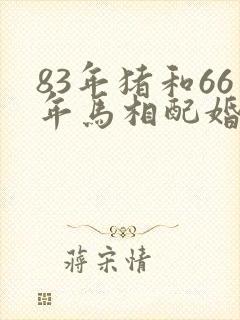 83年猪和66
年马相配婚
蒋宋情